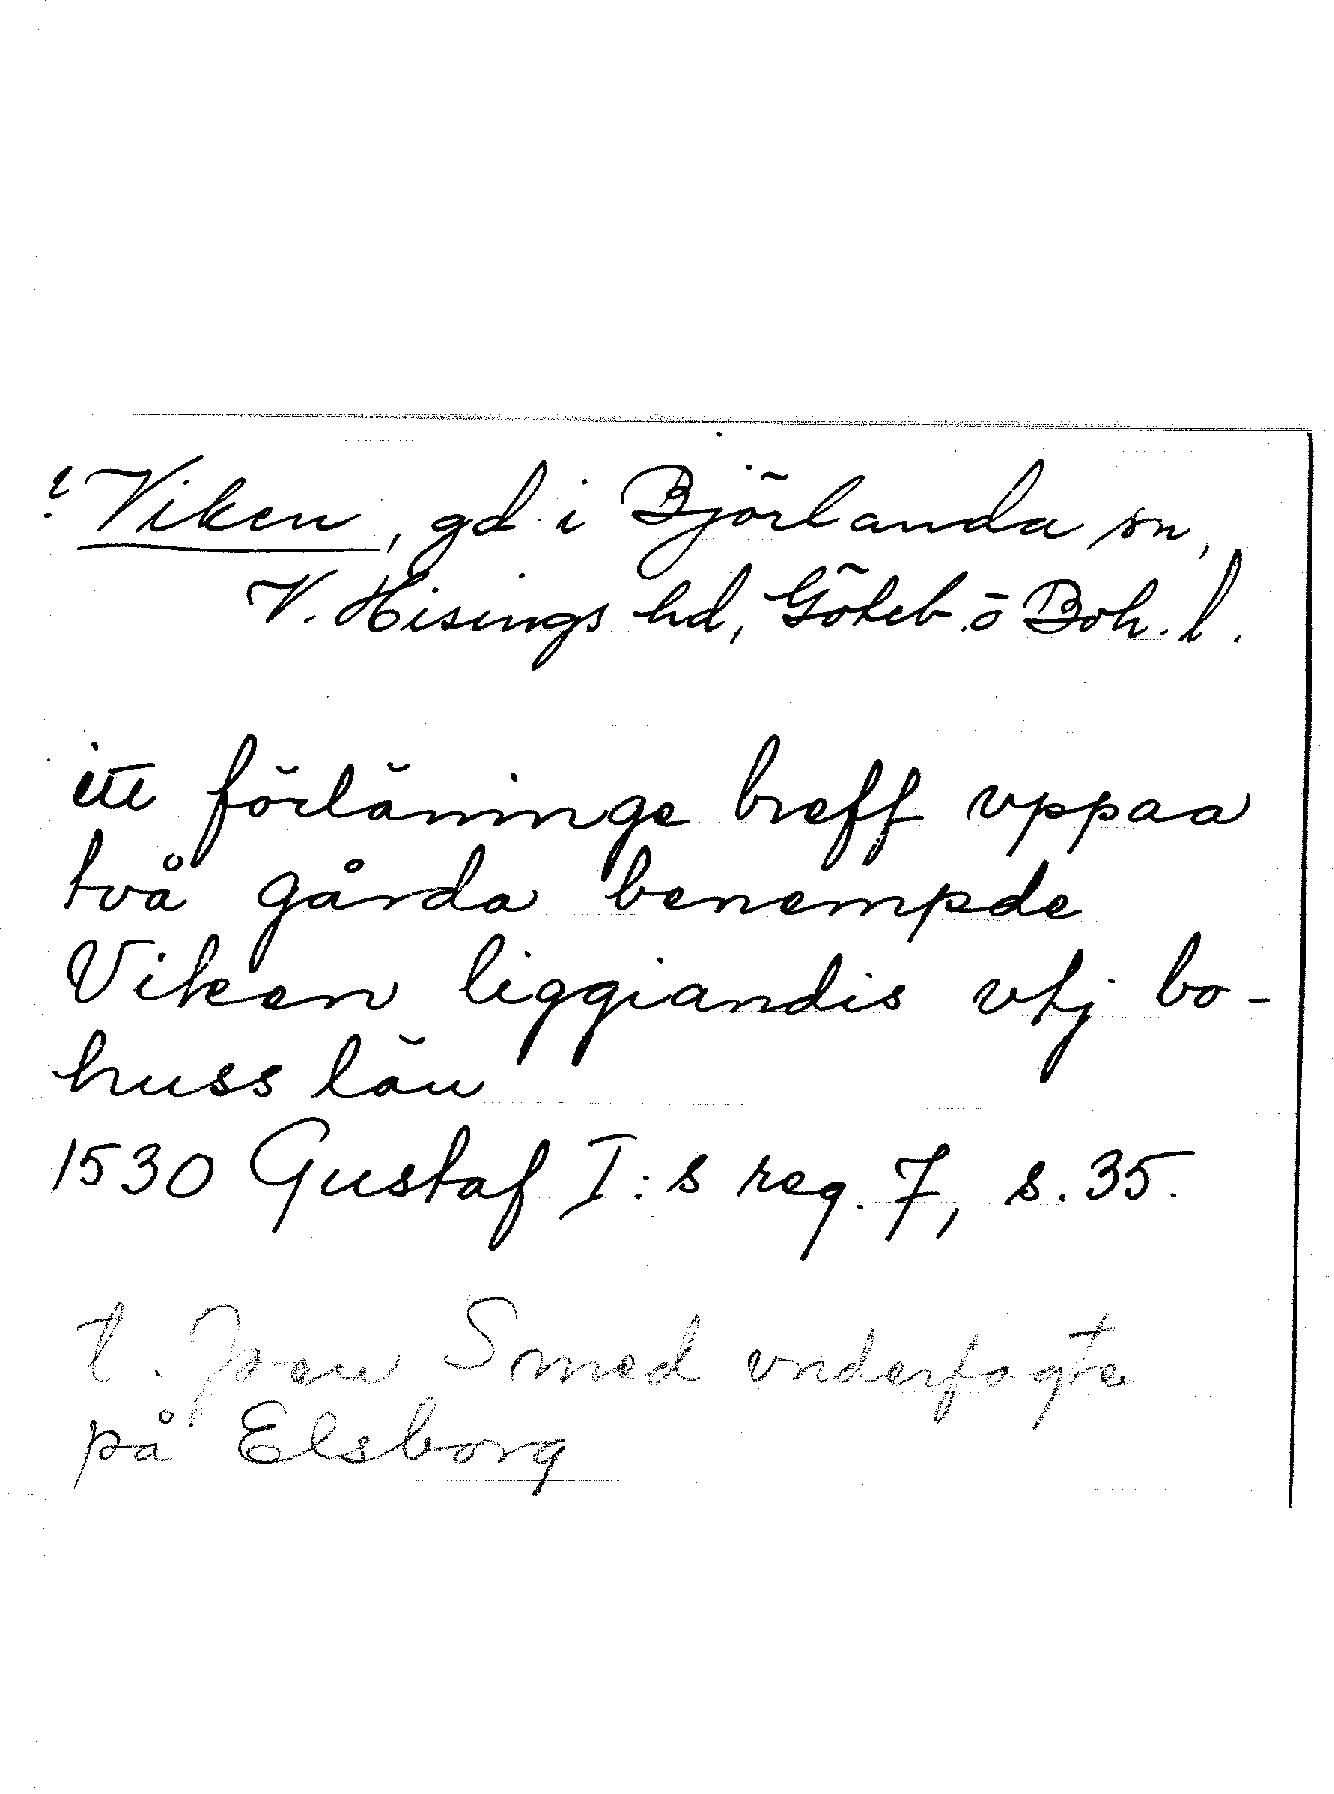 ? Viken, gd i Björlanda sn,
V. Hisings hd, Göteb. o Boh. l.
ett förläninge breff vppaa
två gårda benempde
Viken liggiandis vtj bo-
huss län
1530 Gustaf I:s reg. 7, s. 35.
t. Jven Smed vnderfogte
på Elsborg